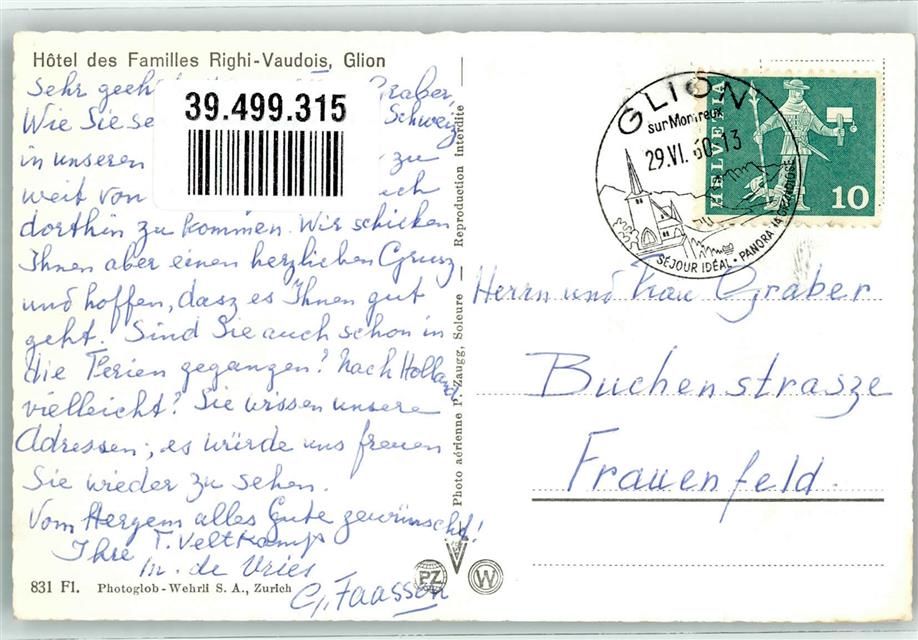 Hôtel des Familles Righi-Vaudois, Glion
Sehr Graber,
Wie Sie Schweiz
in unseren zu
weit von
dorthin zu kommen. Wir schicken
Ihnen aber einen herzlichen Grusz
und hoffen, dasz es Ihnen gut
geht. Sind Sie auch schon in
die Ferien gegangen? Nach Holland
vielleicht? Sie wissen unsere
Adressen; es würde uns freuen
Sie wieder zu sehen.
Vom Herzem alles Gute gewünscht!
Ihre T. Veltkamp
M. de Vries
G. Faassen
831 Fl. Photoglob-Wehrli S. A., Zurich
39.499.315
Photo aérienne P. Zaugg, Soleure - Reproduction interdite
PZ
W
GLION
sur Montreux
29.VI.60-13
SÉJOUR IDÉAL • PANORAMA GRANDIOSE
HELVETIA
10
Herrn und Frau Graber
Buchenstrasze
Frauenfeld.